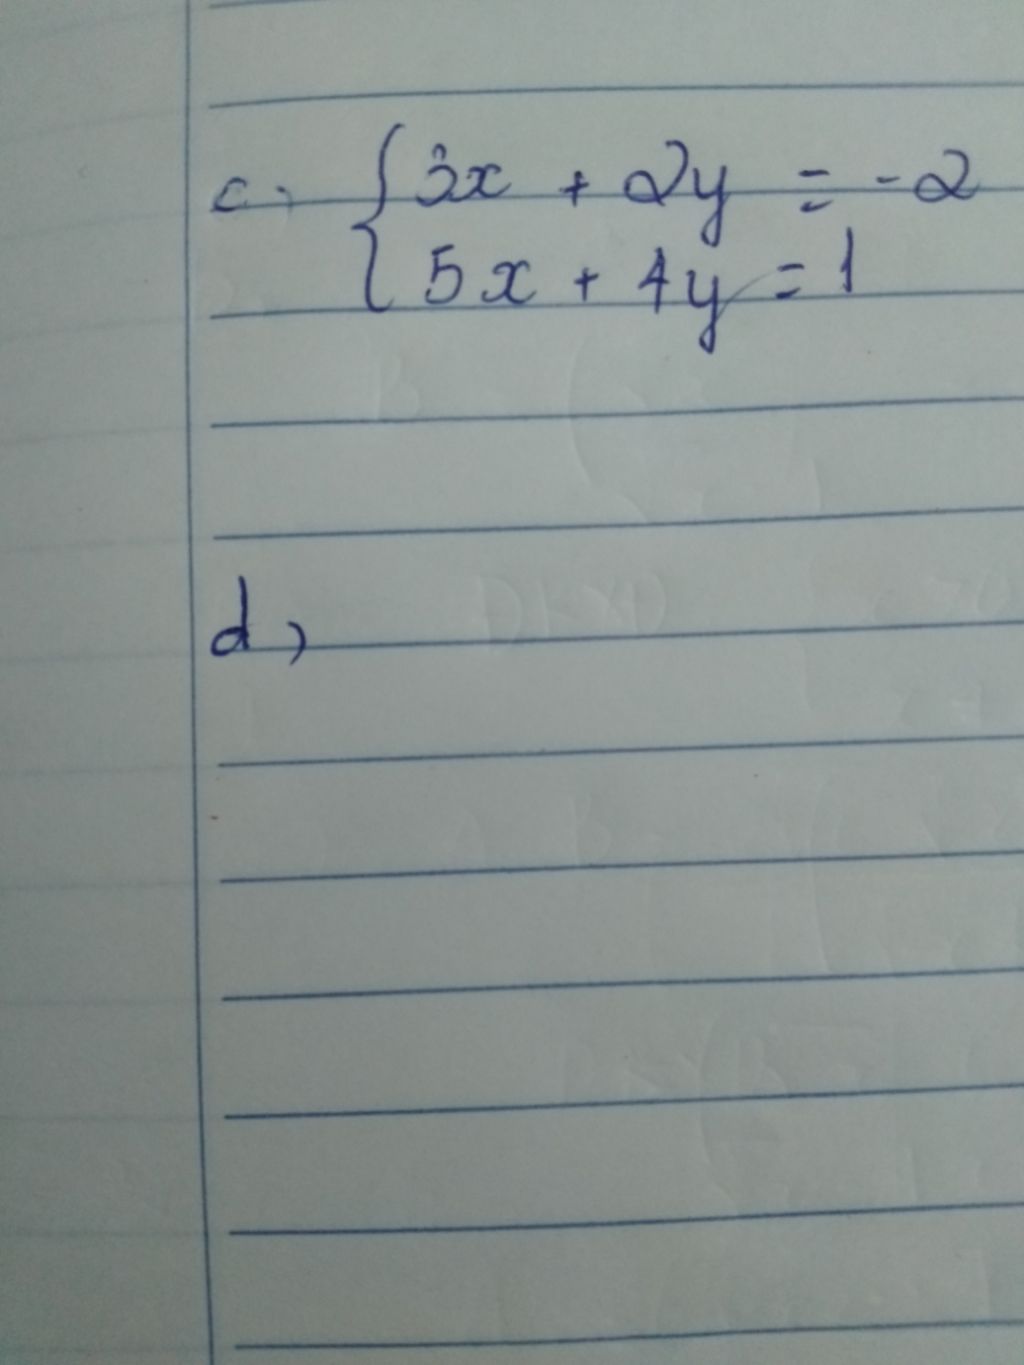 c, { 3x + 2y = -2
5x + 4y = 1
d,